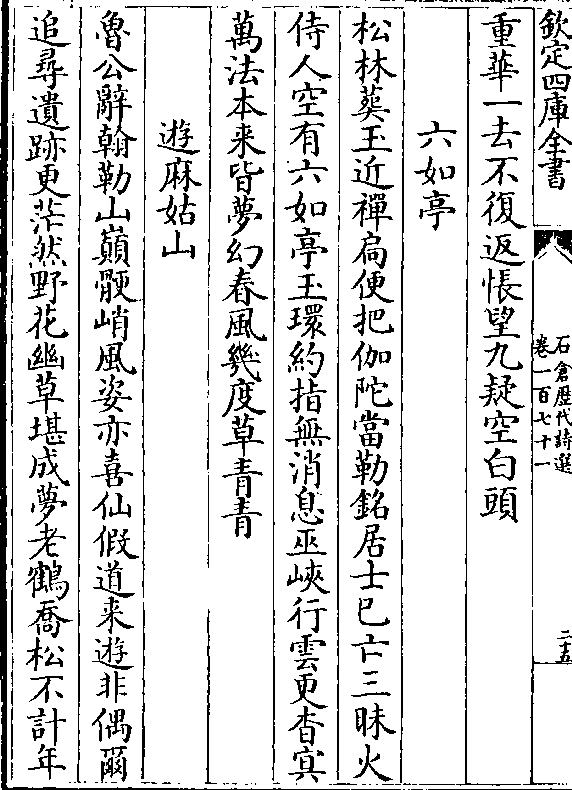 欽定四庫全書
石倉歷代詩選
卷一百七十一
二十五
重華一去不復返悵望九疑空白頭
六如亭
松林葬玉近禪扄便把伽陀當勒銘居士已亡三昧火
侍人空有六如亭玉環約指無消息巫峽行雲更杳㝠
萬法本来皆夢幻春風幾度草青青
遊麻姑山
魯公辭翰勒山巔骾峭風姿亦喜仙假道来遊非偶爾
追尋遺跡更茫然野花幽草堪成夢老鶴喬松不計年